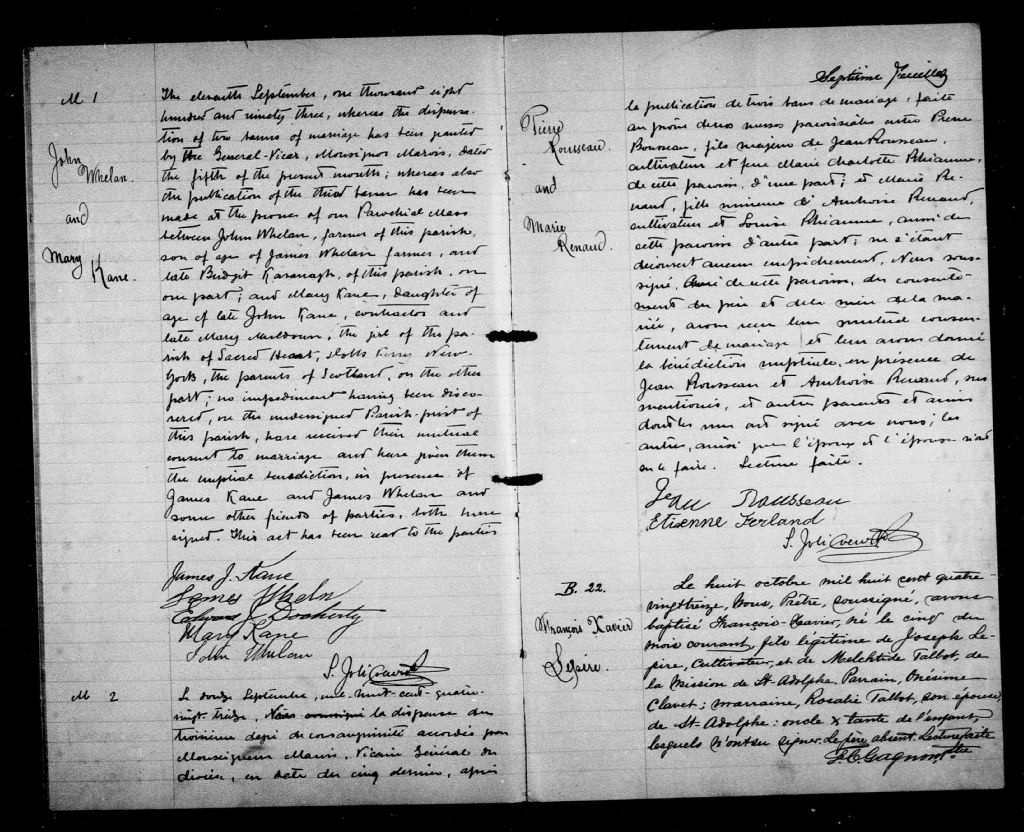 M 1
John Whelan.
and
Mary Kane.
The eleventh September, one thousand eight
hundred and ninety three, whereas the dispensa-
tion of two banns of marriage has been granted
by the General-Vicar, Monsignor Marois, dated
the fifth of the present month; whereas also
the publication of the third bann has been
made at the prones of our Parochial Mass
between John Whelan, farmer of this parish,
son of age of James Whelan farmer, and
late Bridgit Kavanagh, of this parish, on
one part; and Mary Kane, daughter of
age of late John Kane, contractor and
late Mary Muldoun, the girl of the pa-
rish of Sacred Heart, Ferry New-
York, the parents of Scotland, on the other
part; no impediment having been disco-
vered, we the undersigned Parish-priest of
this parish, have received their mutual
consent to marriage and have given them
the nuptial benediction, in presence of
James Kane and James Whelan and
some other friends of parties, both have
signed. This act has been read to the parties
James J. Kane
James Wheln
Edward J. Docherty
Mary Kane
John Whelan
S. Jolicoeur Ptre
M 2
Le douze Septembre, mil-huit-cent-quatre-
vingt-treize, la dispense du
troisième degré de consanguinité accordée par
Monseigneur Marois, Vicaire Général du
diocèse, en date du cinq dernier, après
Septième Feuillet
Pierre Rousseau.
and
Marie Renaud.
la publication de trois bans de mariage, faite
au prône de nos messes paroissiales entre Pierre
Rousseau, fils majeur de Jean Rousseau,
cultivateur et feue Marie Charlotte Rhéaume,
de cette paroisse, d'une part; et Marie Re-
naud, fille mineure d'Ambroise Renaud,
cultivateur et Louise Rhéaume, aussi de
cette paroisse d'autre part; ne s'étant
découvert aucun empêchement, Nous sous-
signé, Curé de cette paroisse, du consente-
ment du père et de la mère de la ma-
riée, avons reçu leur mutuel consen-
tement de mariage et leur avons donné
la bénédiction nuptiale, en présence de
Jean Rousseau et Ambroise Renaud, sus
mentionnés, et autres parents et amis
dont les uns ont signé avec nous; les
autres, ainsi que l'époux et l'épouse n'ont
su le faire. Lecture faite.
Jean Rousseau
Etienne Ferland
S. Jolicoeur Ptre
B. 22.
François Xavier
Lepire.
Le huit octobre mil huit cent quatre-
vingt treize, Nous, Prêtre, soussigné, avons
baptisé François-Xavier, né le cinq du
mois courant, fils légitime de Joseph Le-
pire, Cultivateur, et de Melchtide Talbot, de
la Mission de St-Adolphe. Parrain, Onésime
Clavet; marraine, Rosalie Talbot, son épouse,
de St-Adolphe: oncle & tante de l'enfant,
lesquels n'ont su signer. Le père absent. Lecture faite
F. C. Gagnon Ptre